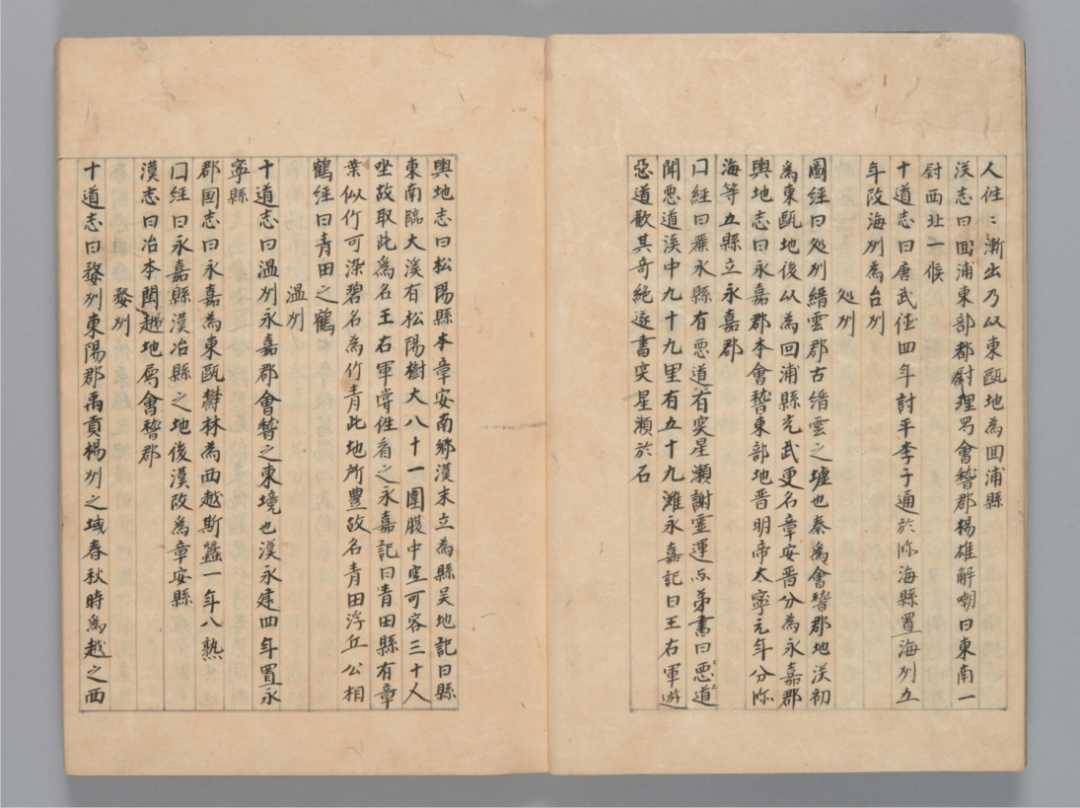 人往〻漸出乃以東甌地為囬浦縣
漢志曰囬浦東部都尉理另會嵇郡楊雄解嘲曰東南一
尉西北一候
十道志曰唐武徳四年討平李子通於臨海縣置海州五
年改海州為台州
処州
圖經曰処州縉雲郡古縉雲之墟也秦為會嵇郡地漢初
為東甌地後以為回浦縣光武更名章安晉分為永嘉郡
輿地志曰永嘉郡本會嵇東部地晋明帝太寧元年分臨
海等五縣立永嘉郡
又經曰麗水縣有惡道有突星瀬謝靈運与弟書曰惡道
聞惡道溪中九十九里有五十九灘永嘉記曰王右軍遊
惡道歎其奇絶遂書突星瀬於石
輿地志曰松陽縣本章安南郷漢末立為縣吴地記曰縣
東南臨大溪有松陽樹大八十一圍腹中空可容三十人
坐故取此為名王右軍嘗往看之永嘉記曰青田縣有章
葉似竹可染碧名為竹青此地所豊故名青田浮丘公相
鶴經曰青田之鶴
温州
十道志曰温州永嘉郡會嵇之東境也漢永建四年置永
寧縣
郡國志曰永嘉為東甌欝林為西越斯蠶一年八熟
又經曰永嘉縣漢冶縣之地後漢改為章安縣
漢志曰冶本閩越地屬會嵇郡
婺州
十道志曰婺州東陽郡禹貢楊州之域春秋時為越之西